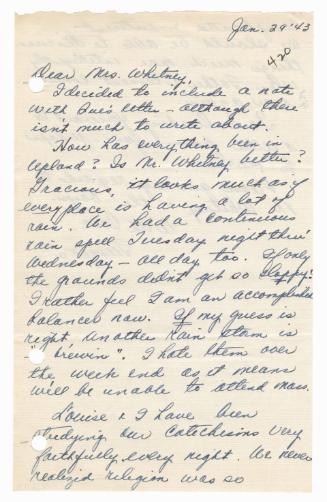 Jan. 29 '43
420
Dear Mrs. Whitney,
I decided to include a note
with Sue's letter - although there
isn't much to write about.
How has everything been in
Upland? Is Mr. Whitney better?
Gracious, it looks much as if
everyplace is having a lot of
rain. We had a continuous
rain spell Tuesday night thru
Wednesday - all day, too. If only
the grounds didn't get so sloppy!
I rather feel I am an accomplished
balancer now. If my guess is
right another rain storm is
"brewin". I hate them over
the week end as it means
we'll be unable to attend mass.
Louise & I have been
studying our catechisms very
faithfully every night. We never
realized religion was so